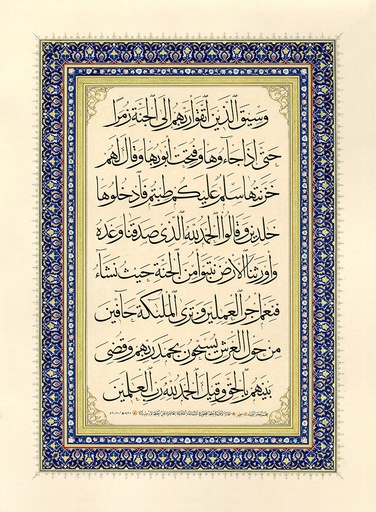 وسيق الذين اتقوا ربهم الى الجنة زمرا
حتى اذا جاءوها وفتحت ابوبها وقال لهم
خزنتها سلم عليكم طبتم فادخلوها
خلدين وقالوا الحمد لله الذى صدقنا وعده
واورثنا الارض نتبوا من الجنة حيث نشاء
فنعم اجر العملين وترى الملئكة حافين
من حول العرش يسبحون بحمد ربهم وقضى
بينهم بالحق وقيل الحمد لله رب العلمين